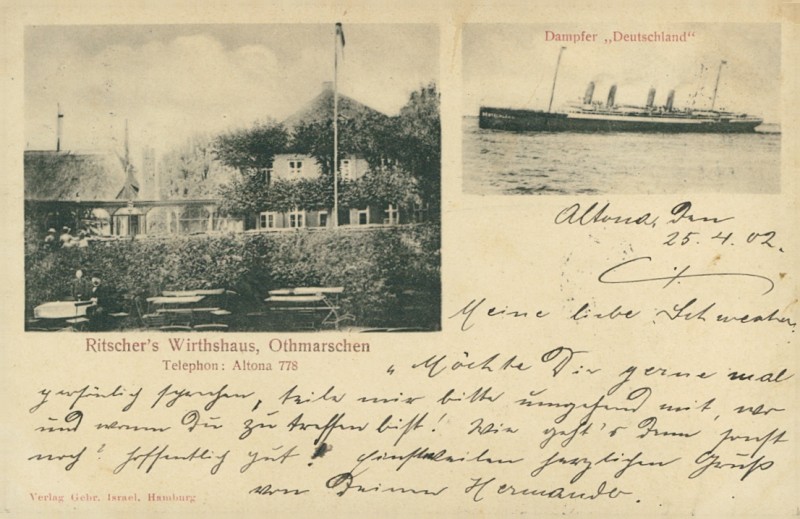 Dampfer „Deutschland“
DEUTSCHLAND
Altona, den
25. 4. 02.
Meine liebe Schwester.
Ritscher's Wirthshaus, Othmarschen
Telephon: Altona 778
„Möchte Dir gerne mal
persönlich sprechen, teile mir bitte umgehend mit, wo
und wann Du zu treffen bist! Wie geht's denn sonst
noch? hoffentlich gut! Einstweilen herzlichen Gruß
von Deiner
Verlag Gebr. Israel, Hamburg